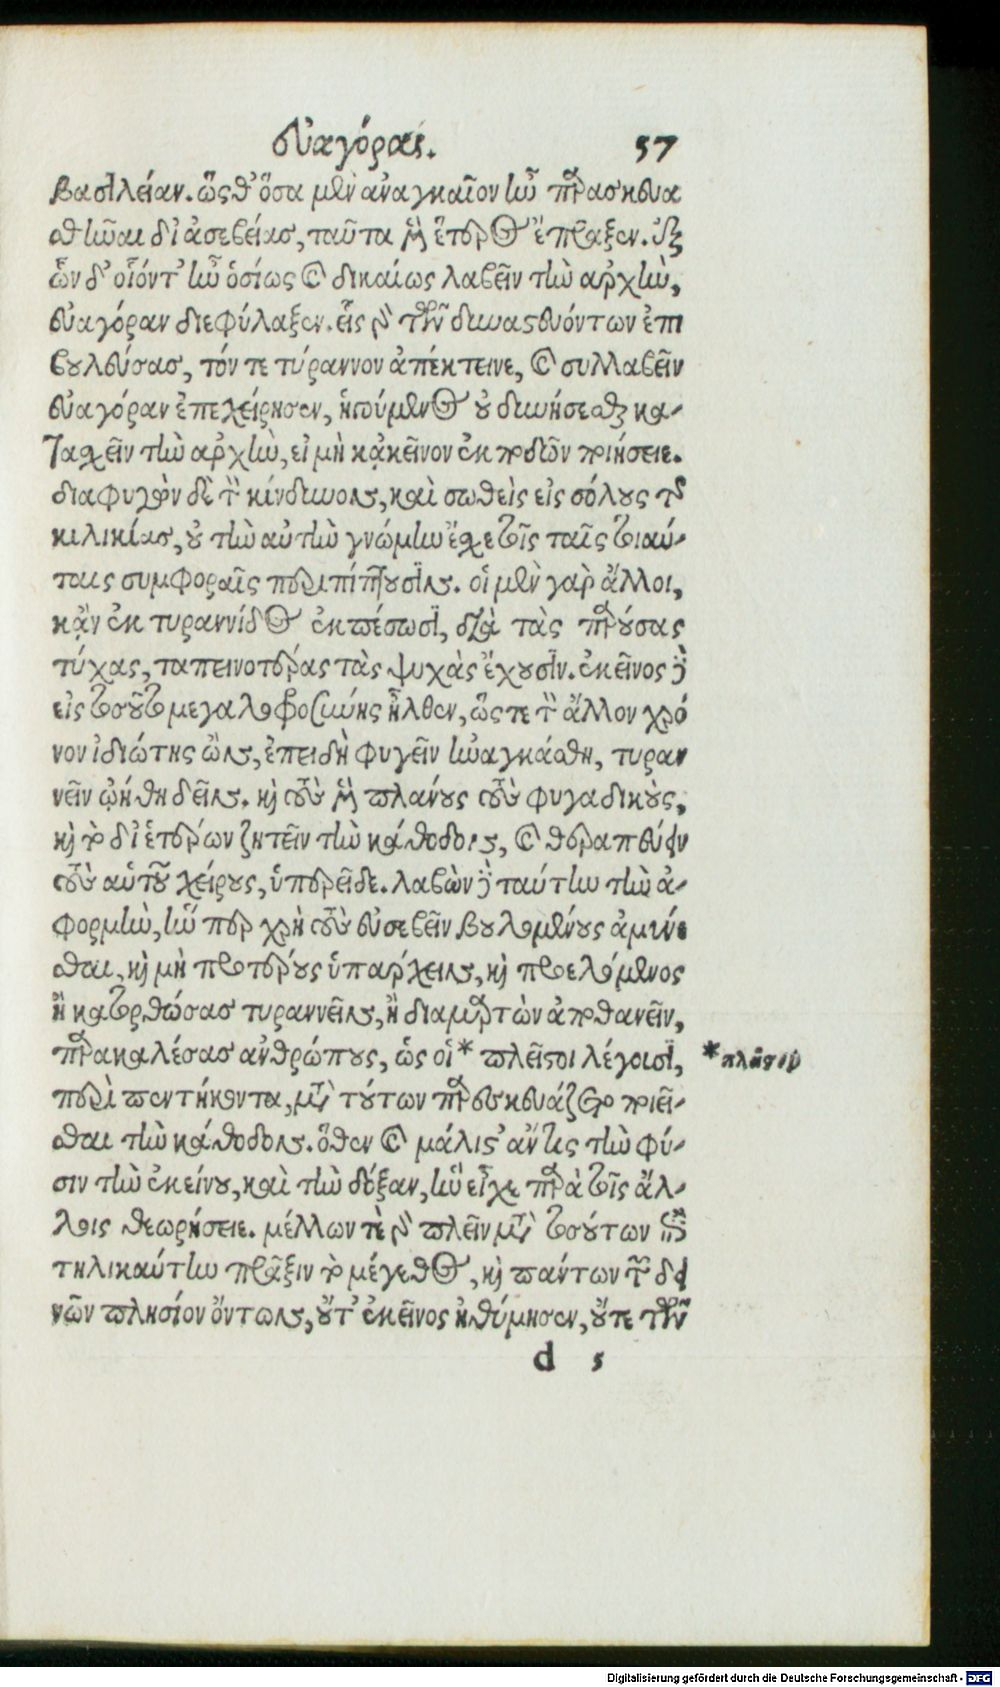 Εὐαγόρας. 57
βασιλείαν. ὥςθ' ὅσα μὲν ἀναγκαῖον ἦν παρασκευα
σθῆναι δι' ἀσεβείας, ταῦτα μὲν ἕτερος ἔπραξεν. ἐξ
ὧν δ' οἷόντ' ἦν ὁσίως καὶ δικαίως λαβεῖν τὴν ἀρχὴν,
εὐαγόραν διεφύλαξεν. εἷς γὰρ τῶν δυναστευόντων ἐπι
βουλεύσας, τόν τε τύραννον ἀπέκτεινε, καὶ συλλαβεῖν
εὐαγόραν ἐπεχείρησεν, ἡγούμενος οὐ δυνήσεσθαι κα-
τασχεῖν τὴν ἀρχὴν, εἰ μὴ κἀκεῖνον ἐκποδὼν ποιήσειε.
διαφυγὼν δὲ τὸν κίνδυνον, καὶ σωθεὶς εἰς σόλους τῆς
κιλικίας, οὐ τὴν αὐτὴν γνώμην ἔσχε τοῖς ταῖς τοιαύ-
ταις συμφοραῖς περιπίπτουσιν. οἱ μὲν γὰρ ἄλλοι,
κἂν ἐκ τυραννίδος ἐκπέσωσι, διὰ τὰς παρούσας
τύχας, ταπεινοτέρας τὰς ψυχὰς ἔχουσιν. ἐκεῖνος δὲ
εἰς τοσοῦτο μεγαλοφροσύνης ἦλθεν, ὥςτε τὸν ἄλλον χρό
νον ἰδιώτης ὢν, ἐπειδὴ φυγεῖν ἠναγκάσθη, τυραν
νεῖν ᾠήθη δεῖν. καὶ τοὺς μὲν πλάνους τοὺς φυγαδικοὺς,
καὶ τὸ δι' ἑτέρων ζητεῖν τὴν κάθοδον, καὶ θεραπεύειν
τοὺς αὑτοῦ χείρους, ὑπερεῖδε. λαβὼν δὲ ταύτην τὴν ἀ-
φορμὴν, ἥν περ χρὴ τοὺς εὐσεβεῖν βουλομένους ἀμύνε
σθαι, καὶ μὴ προτέρους ὑπάρχειν, καὶ προελόμενος
ἢ κατορθώσας τυραννεῖν, ἢ διαμαρτὼν ἀποθανεῖν,
παρακαλέσας ἀνθρώπους, ὡς οἱ* πλεῖστοι λέγουσι, *πλεῖστον
περὶ πεντήκοντα, μετὰ τούτων παρεσκευάζετο ποιεῖ-
σθαι τὴν κάθοδον. ὅθεν καὶ μάλιστ' ἄν τις τὴν φύ-
σιν τὴν ἐκείνου, καὶ τὴν δόξαν, ἣν εἶχε παρὰ τοῖς ἄλ-
λοις θεωρήσειε. μέλλων τὲ γὰρ πλεῖν μετὰ τοσούτων ἐπὶ
τηλικαύτην πρᾶξιν τὸ μέγεθος, καὶ πάντων τῶν δει
νῶν πλησίον ὄντων, οὔτ' ἐκεῖνος ἠθύμησεν, οὔτε τῶν
d 5
Digitalisierung gefördert durch die Deutsche Forschungsgemeinschaft - DFG